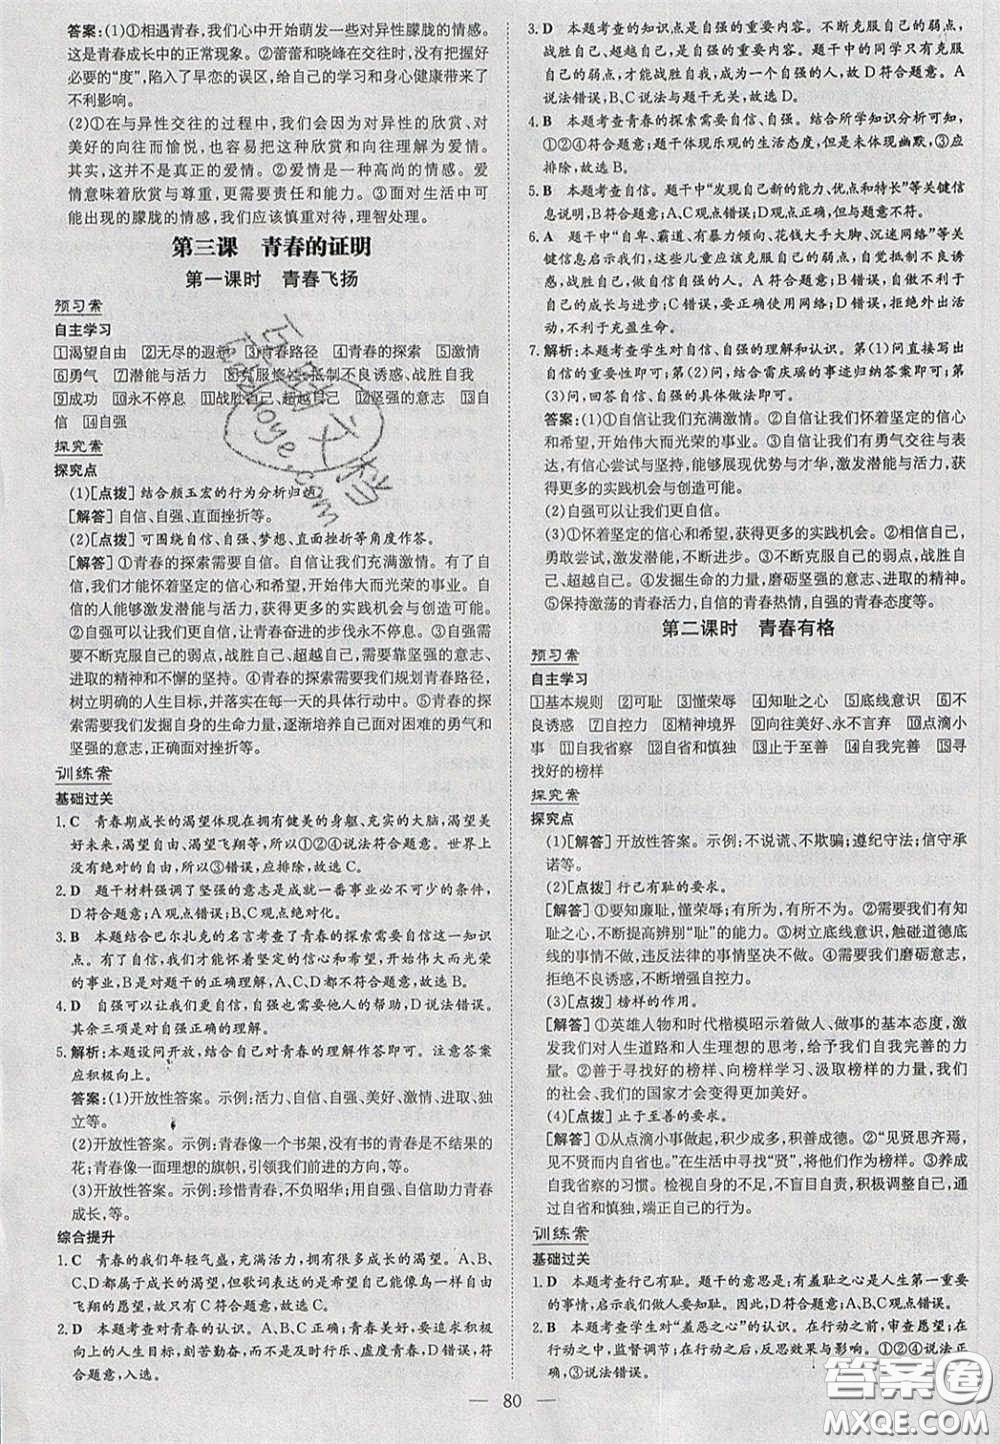 答案:(1)①相遇青春,我们心中开始萌发一些对异性朦胧的情感,
这是青春成长中的正常现象。②蕾蕾和晓峰在交往时,没有把握好
必要的“度”,陷入了早恋的误区,给自己的学习和身心健康带来了
不利影响。
(2)①在与异性交往的过程中,我们会因为对异性的欣赏、对
美好的向往而愉悦,也容易把这种欣赏和向往理解为爱情。
其实,这并不是真正的爱情。②爱情是一种高尚的情感。爱
情意味着欣赏与尊重,更需要责任和能力。③面对生活中可
能出现的朦胧的情感,我们应该慎重对待,理智处理。
第三课 青春的证明
第一课时 青春飞扬
预习案
自主学习
1渴望自由 2无尽的遐想 3青春路径 4青春的探索 5激情
6勇气 7潜能与活力 8克服惰性、抵制不良诱惑、战胜自我
9成功 10永不停息 11战胜自己、超越自己 12坚强的意志 13自
信 14自强
探究案
探究点
(1)[点拨] 结合颜玉宏的行为分析归纳。
[解答] 自信、自强、直面挫折等。
(2)[点拨] 可围绕自信、自强、梦想、直面挫折等角度作答。
[解答] ①青春的探索需要自信,自信让我们充满激情。有了自
信,我们才能怀着坚定的信心和希望,开始伟大而光荣的事业。自
信的人有勇气交往与表达,有信心尝试与坚持,能够展现优势与才
华,激发潜能与活力,获得更多的实践机会与创造可能。
②自强可以让我们更自信,让青春奋进的步伐永不停息。③自强,
需要我们不断克服自己的弱点,战胜自己、超越自己。自强,
要靠坚强的意志、进取的精神和不懈的坚持。④青春的探索需要我们规划青春路径,
树立明确的人生目标,并落实在每一天的具体行动中。⑤青春的探
索需要我们发掘自身的生命力量,逐渐培养自己面对困难的勇气和
坚强的意志,正确面对挫折等。
训练案
基础过关
1. C 青春期成长的渴望体现在拥有健美的身躯、充实的大脑,渴望美
好未来,渴望自由、渴望飞翔等,所以①②④说法符合题意。世界上
没有绝对的自由,所以③错误,应排除,故选 C。
2. D 题干材料强调了坚强的意志是成就一番事业必不可少的条件,
D 符合题意;A 观点错误;B、C 观点绝对化。
3. B 本题结合巴尔扎克的名言考查了青春的探索需要自信这一知识
点。有了自信,我们才能怀着坚定的信心和希望,开始伟大而光荣
的事业,B 是对题干的正确理解,A、C、D 不符合题意,故选 B。
4. D 自强可以让我们更自信,自强也需要他人的帮助,D 说法错误。
其余三项是对自强正确的理解。
5. 解析:本题设问开放,结合自己对青春的理解作答即可。注意答案
应积极向上。
答案:(1)开放性答案。示例:活力、自信、自强、美好、激情、进取、独
立等。
(2)开放性答案。示例:青春像一个书架,没有书的青春是不结果的
花;青春像一面理想的旗帜,引领我们前行,等。
(3)开放性答案。示例:珍惜青春,不负韶华;用自强、自信助力青春
成长,等。
综合提升
1. C 青春的我们年轻气盛,充满活力,拥有很多成长的渴望。A、B、
C、D 都属于成长的渴望,但歌词表达的是希望自己能像鸟儿一样自由
飞翔的愿望,故只有 C 符合题意,故选 C。
2. D 本题考查对青春的认识。A、B、C 正确。青春美好,要追求积极
向上的人生目标,刻苦勤奋,而不是及时行乐、虚度青春,D 错误但符
合题意,入选。
3. D 本题考查的知识点是自强的重要性。不断克服自己的弱点,
战胜自己、超越自己,是自强的重要内容。题干中的同学只有克服
自己的弱点,战胜自己,才能成为一个自强的人,故 D 符合题意。A
说法错误,B、C 说法与题干无关,故选 D。
4. B 本题考查青春的探索需要自信、自强。结合所学知识分析可知,
①②④符合题意;题干体现乐观的生活态度,没有体现幽默,③应
排除,故选 B。
5. B 本题考查自信。题干中“发现自己新的能力、优点和特长”等关键信
息说明,B 符合题意;A、C 观点错误;D 观点正确,但与题意不符。
6. A 题干中“自卑、霸道、有暴力倾向、花钱大手大脚、沉迷网络”等关
键信息说明这些儿童应该不断克服自己的弱点,自觉抵制不良诱
惑,做自尊自强的人,A 符合题意;B 错误,没有正确认识挫折对自
己的成长与进步;C 错误,要正确使用网络;D 错误,拒绝外出活
动,不利于充盈生命。
7. 解析:本题考查学生对自信、自强的理解和认识。第(1)问直接写出
自信的重要性即可;第(2)问,结合雷庆瑶的事迹归纳答案即可;第
(3)问,回答自信、自强的具体做法即可。
答案:(1)①自信让我们充满激情。②自信让我们怀着坚定的信心
和希望,开始伟大而光荣的事业。③自信让我们有勇气交往与表达,
有信心尝试与坚持,能够展现优势与才华,激发潜能与活力,获
得更多的实践机会与创造可能。
(2)自强可以让我们更自信。
(3)①怀着坚定的信心和希望,获得更多的实践机会。②自信自强,
勇敢尝试,激发潜能,不断进步。③不断克服自己的弱点,战胜自
己、超越自己。④发掘生命的力量,磨砺坚强的意志、进取的精神。
⑤保持激荡的青春活力、自信的青春热情,自强的青春态度等。
第二课时 青春有格
预习案
自主学习
1基本规则 2可耻 3懂荣辱 4知耻之心 5底线意识 6不
良诱惑 7自控力 8精神境界 9向往美好、永不言弃 10点滴小
事 11自我省察 12自省和慎独 13止于至善 14自我完善 15寻
找好的榜样
探究案
探究点
(1)[解答] 开放性答案。示例:不说谎、不欺骗;遵纪守法;信守承
诺等。
(2)[点拨] 行己有耻的要求。
[解答] ①要知廉耻,懂荣辱;有所为,有所不为。②需要我们有知耻
之心,不断提高辨别“耻”的能力。③树立底线意识,触碰道德底
线的事情不做,违反法律的事情坚决不做。④需要我们磨砺意志,
拒绝不良诱惑,不断增强自控力。
(3)[点拨] 榜样的作用。
[解答] ①英雄人物和时代楷模昭示着做人、做事的基本态度,激
发我们对人生道路和人生理想的思考,给予我们自我完善的力
量。②善于寻找好的榜样、向榜样学习、汲取榜样的力量,我们
的社会、我们的国家才会变得更加美好。
(4)[点拨] 止于至善的要求。
[解答] ①从点滴小事做起,积少成多,积善成德。②“见贤思齐焉,
见不贤而内自省也。”在生活中寻找“贤”,将他们作为榜样。③养成
自我省察的习惯。检视自身的不足,不盲目自责,积极调整自己,通
过自省和慎独,端正自己的行为。
训练案
基础过关
1. D 本题考查行己有耻。题干的意思是:有羞耻之心是人生第一重要
的事情,启示我们要知耻。因此,D 符合题意;A、B、C 观点错误。
2. B 本题考查学生对“羞恶之心”的认识。在行动之前,审查愿望;在
行动之中,监督调节;在行动之后,反思效果与影响。①②④说法正确,
符合题意;③说法错误。
80
答案圈
MXQE.COM